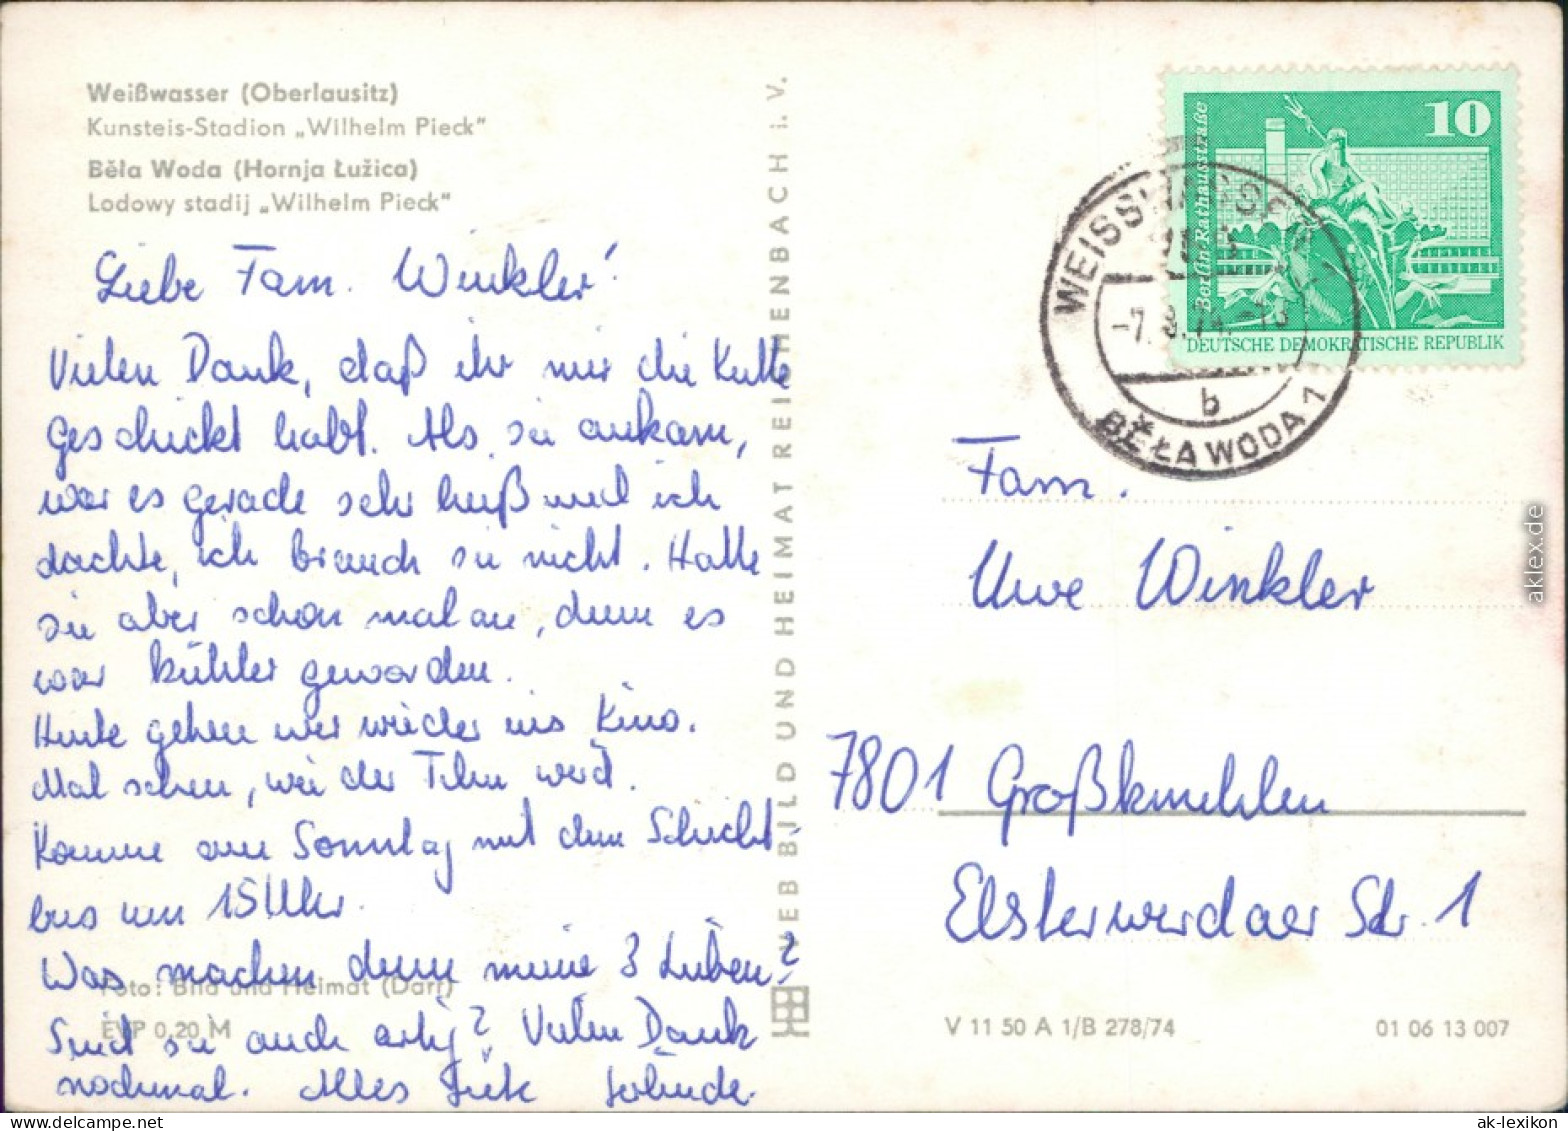 Weißwasser (Oberlausitz)
Kunsteis-Stadion „Wilhelm Pieck"
Běła Woda (Hornja Łužica)
Lodowy stadij „Wilhelm Pieck"
Liebe Fam. Winkler!
Vielen Dank, daß ihr mir die Kutte
geschickt habt. Als sie ankam,
war es gerade sehr heiß und ich
dachte, ich brauch sie nicht. Hatte
sie aber schon mal an, denn es
war kühler geworden.
Heute gehen wir wieder ins Kino.
Mal sehen, wie der Film wird.
Komme am Sonntag mit dem Schicht-
bus um 15 Uhr.
Was machen denn meine 3 Lieben?
Sind sie auch artig? Vielen Dank
nochmal. Alles Gute
Foto: Bild und Heimat (Darr)
EVP 0,20 M
VEB BILD UND HEIMAT REICHENBACH i. V.
10
Berlin Rathausstraße
DEUTSCHE DEMOKRATISCHE REPUBLIK
WEISSWASSER
-7. 8.
b
BĚŁA WODA 1
Fam.
Uwe Winkler
7801 Großkmehlen
Elsterwerdaer Str. 1
V 11 50 A 1/B 278/74
01 06 13 007
aklex.de
ak-lexikon